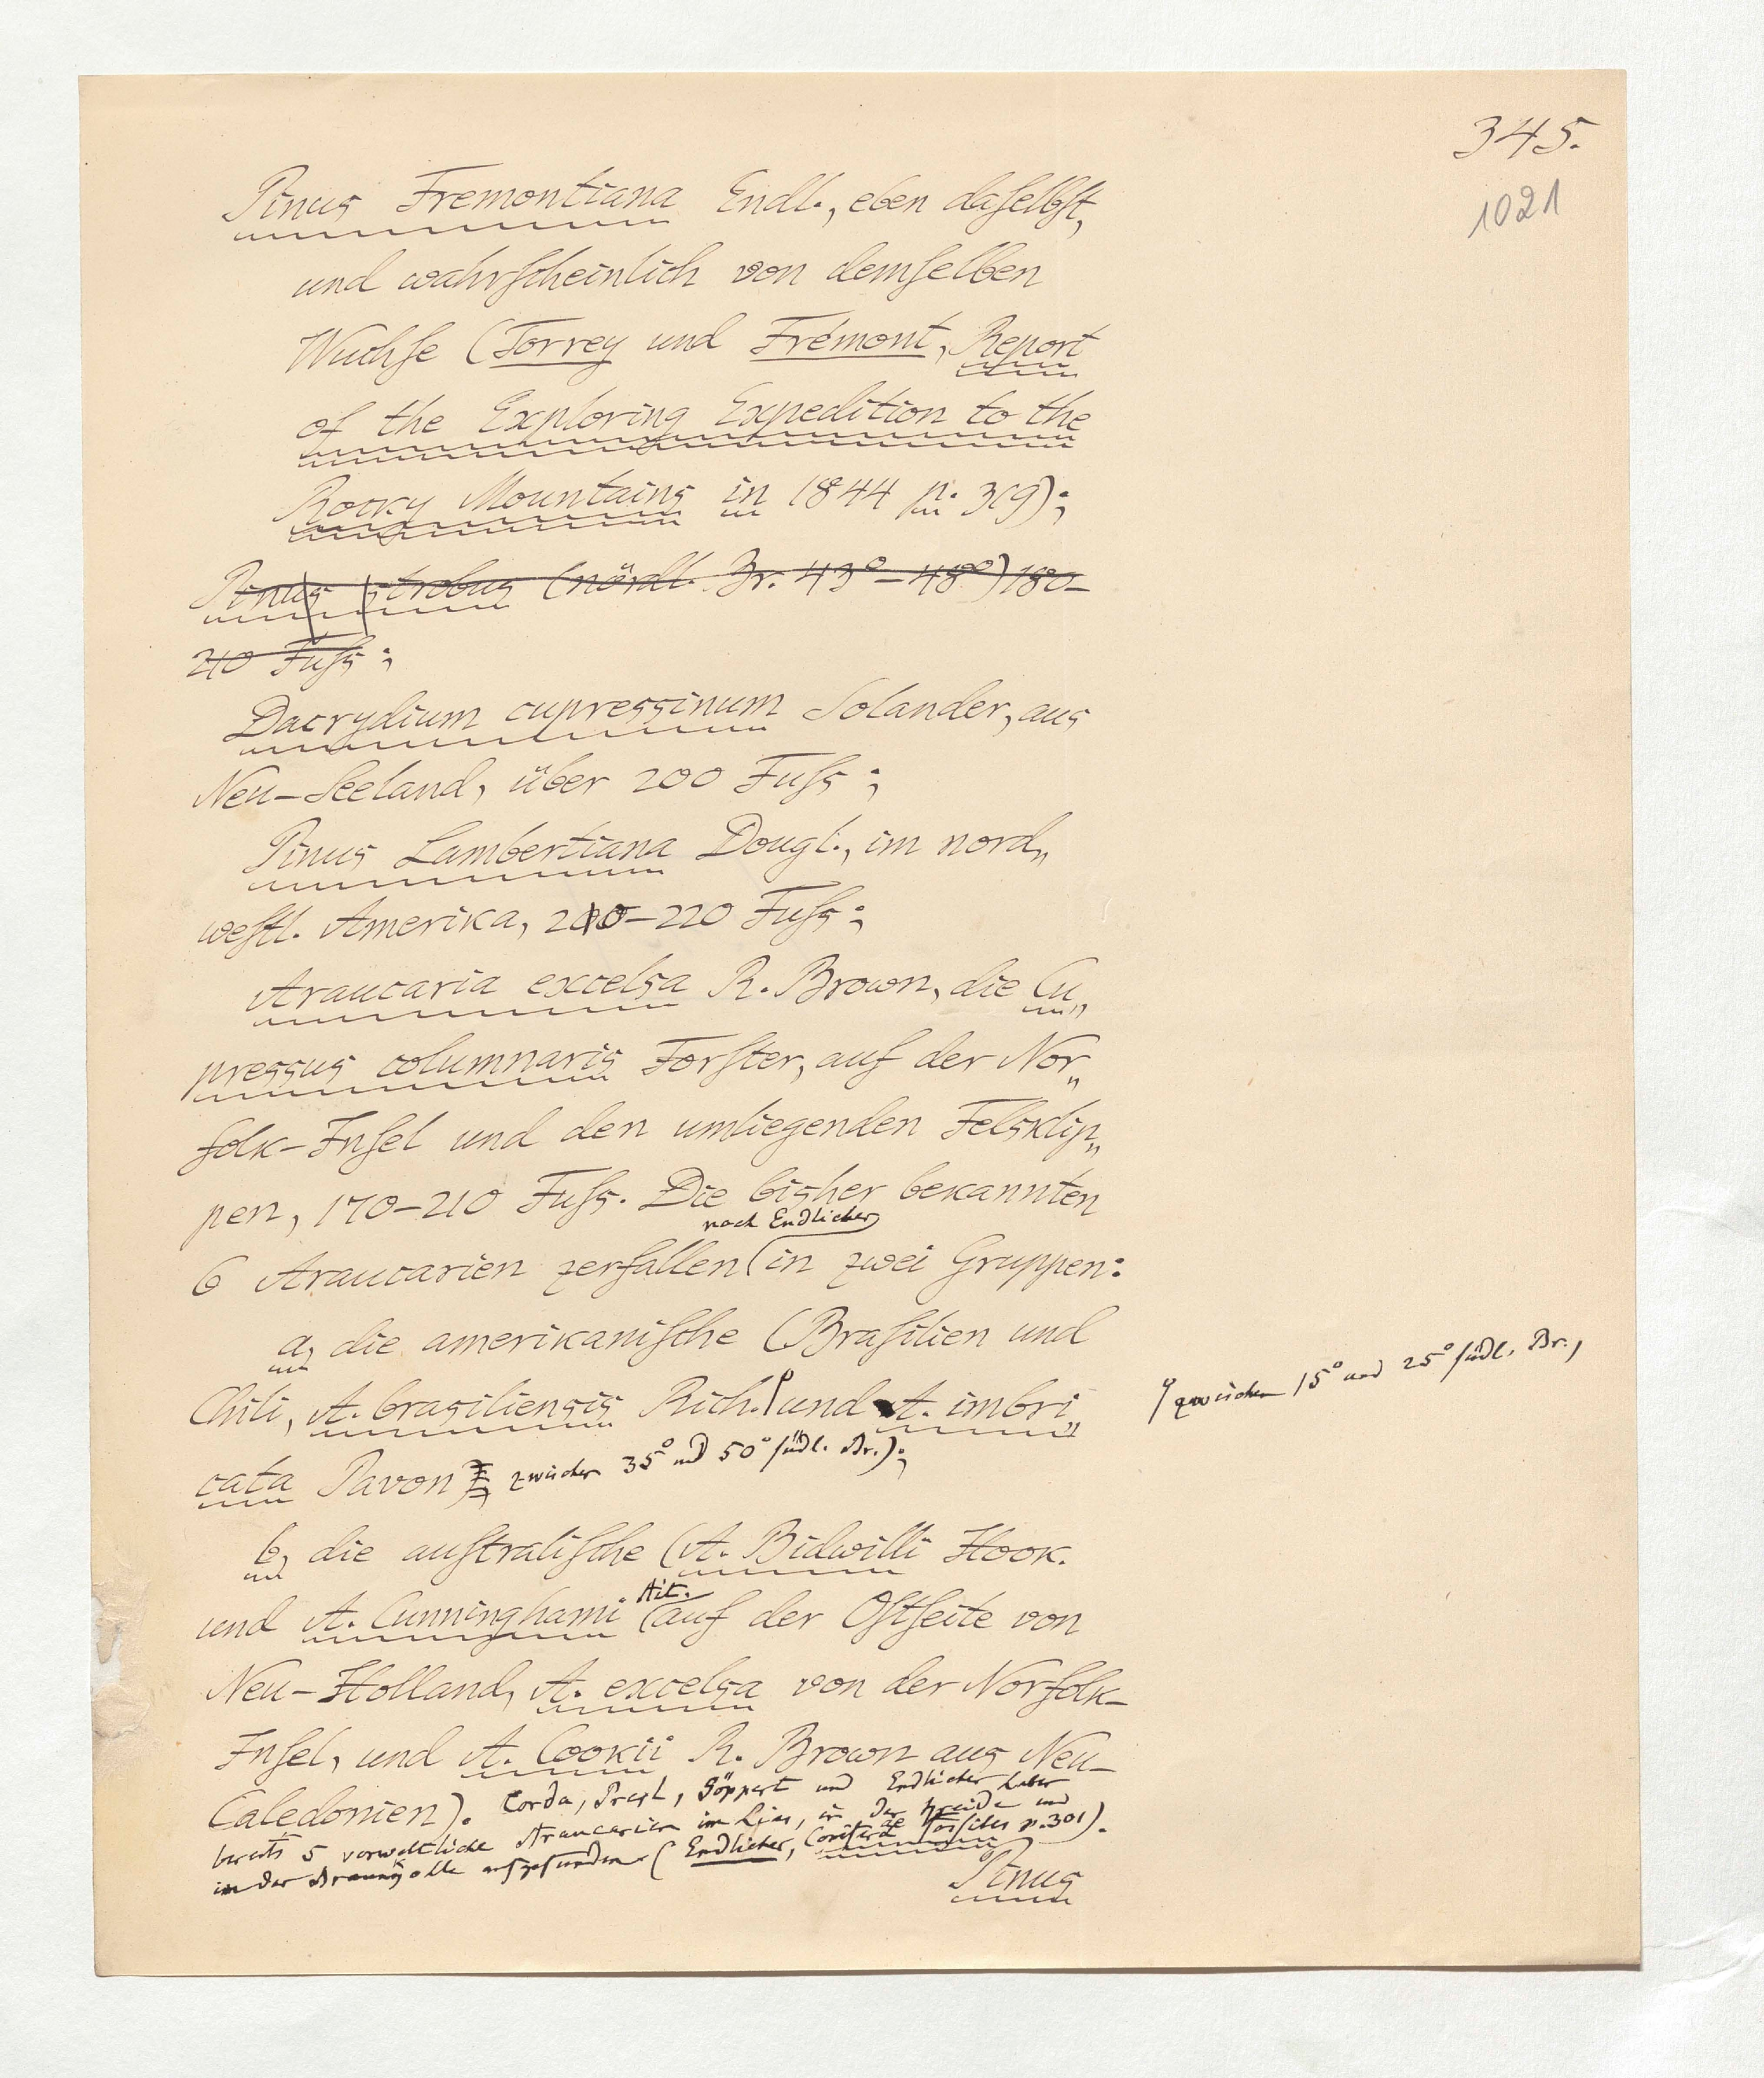 345.
1021
Pinus Fremontiana Endl., eben daſelbſt,
und wahrſcheinlich von demſelben
Wuchſe (Torrey und Frémont, Report
of the Exploring Expedition to the
Rocky Mountains in 1844 p. 319);
Pinus strobus (nördl. Br. 43°–48°) 180–
210 Fuſs;
Dacrydium cupressinum Solander, aus
Neu-Seeland, über 200 Fuſs;
Pinus Lambertiana Dougl., im nord„
weſtl. Amerika, 210–220 Fuſs;
Araucaria excelsa R. Brown, die Cu„
pressus columnaris Forſter, auf der Nor„
folk-Inſel und den umliegenden Felsklip„
pen, 170–210 Fuſs. Die bisher bekannten
nach Endlicher
6 Araucarien zerfallen in zwei Gruppen:
a, die amerikaniſche (Braſilien und
Chili, A. brasiliensis Rich. und A. imbri„
zwischen 15° und 25° ſüdl. Br.,
cata Pavon zwischen 35° und 50° ſüdl. Br.);
b, die auſtraliſche (A. Bidwilli Hook.
Ait.
und A. Cunninghami auf der Oſtſeite von
Neu-Holland, A. excelsa von der Norfolk-
Inſel, und A. Cookii R. Brown aus Neu-
Caledonien). Corda, Presl, Göppert und Endlicher haben
bereits 5 vorweltliche Araucarien im Lias, in der Kreide und
in der Braunkolle aufgefunden (Endlicher, Coniferae fossiles p. 301).
Pinus